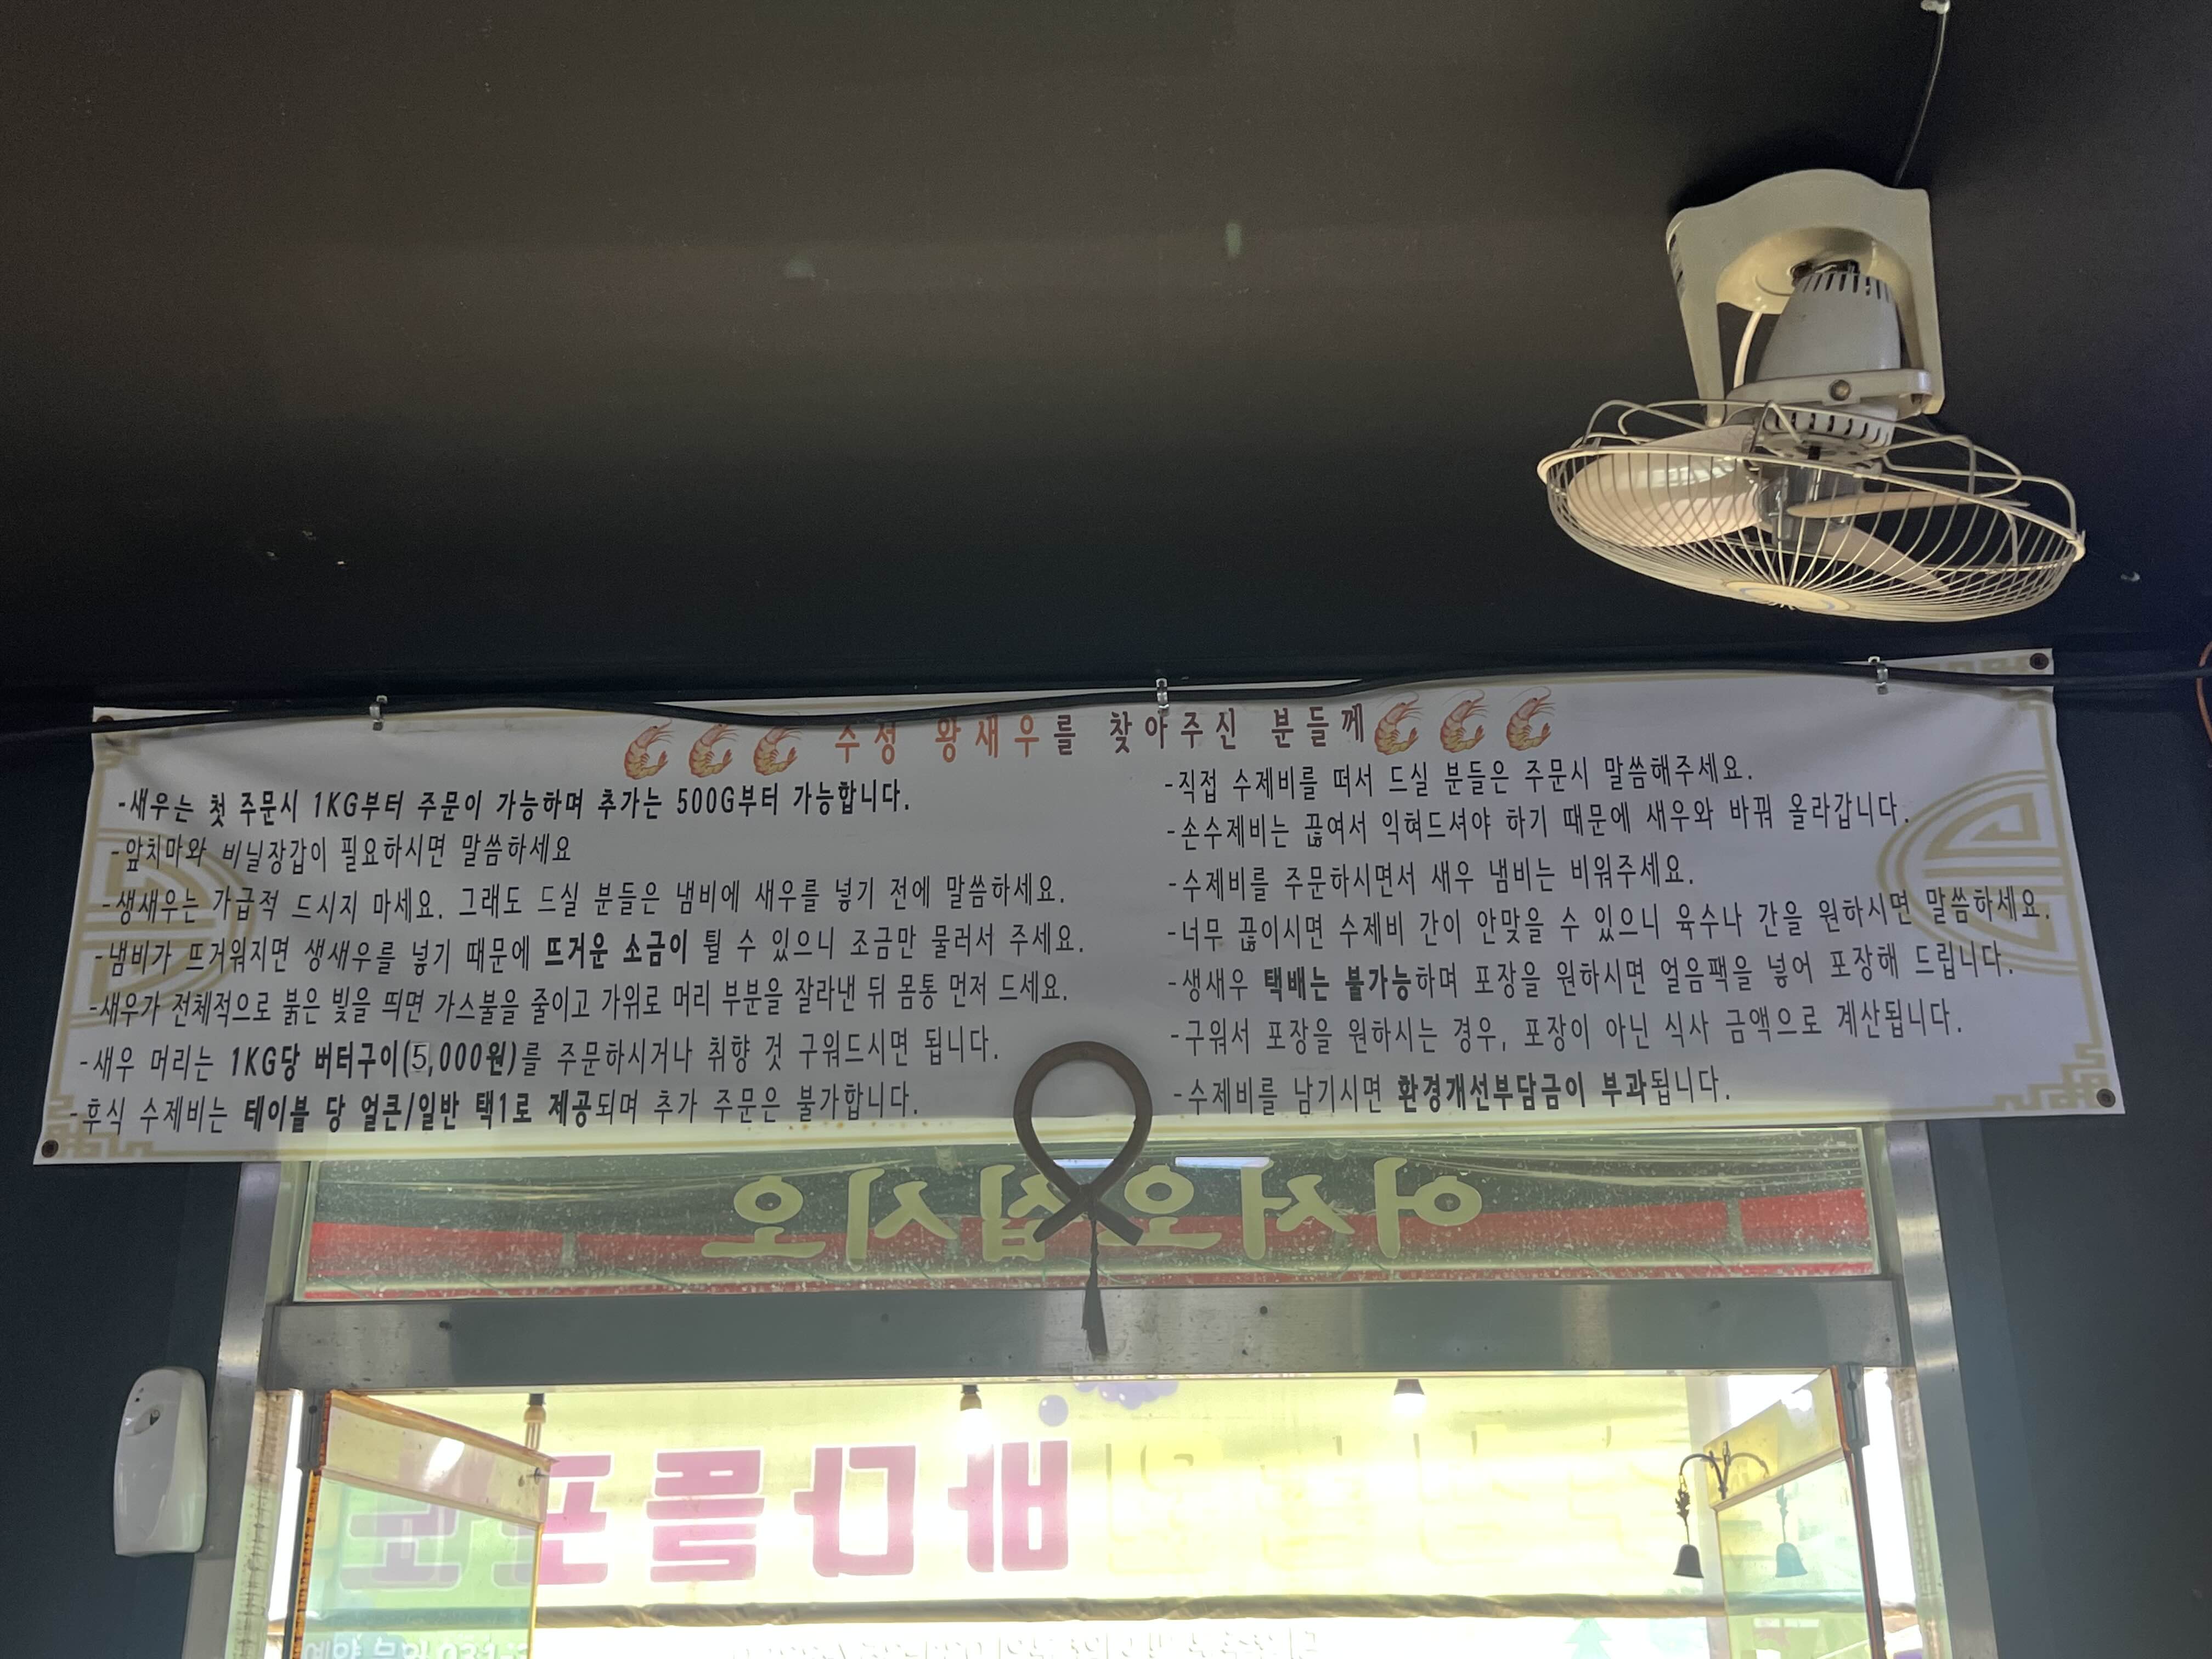 수성 왕새우를 찾아주신 분들께
-새우는 첫 주문시 1KG부터 주문이 가능하며 추가는 500G부터 가능합니다.
-앞치마와 비닐장갑이 필요하시면 말씀하세요
-생새우는 가급적 드시지 마세요. 그래도 드실 분들은 냄비에 새우를 넣기 전에 말씀하세요.
-냄비가 뜨거워지면 생새우를 넣기 때문에 뜨거운 소금이 튈 수 있으니 조금만 물러서 주세요.
-새우가 전체적으로 붉은 빛을 띄면 가스불을 줄이고 가위로 머리 부분을 잘라낸 뒤 몸통 먼저 드세요.
-새우 머리는 1KG당 버터구이(5,000원)를 주문하시거나 취향 것 구워드시면 됩니다.
-후식 수제비는 테이블 당 얼큰/일반 택1로 제공되며 추가 주문은 불가합니다.
-직접 수제비를 떠서 드실 분들은 주문시 말씀해주세요.
-손수제비는 끊여서 익혀드셔야 하기 때문에 새우와 바꿔 올라갑니다.
-수제비를 주문하시면서 새우 냄비는 비워주세요.
-너무 끊이시면 수제비 간이 안맞을 수 있으니 육수나 간을 원하시면 말씀하세요.
-생새우 택배는 불가능하며 포장을 원하시면 얼음팩을 넣어 포장해 드립니다.
-구워서 포장을 원하시는 경우, 포장이 아닌 식사 금액으로 계산됩니다.
-수제비를 남기시면 환경개선부담금이 부과됩니다.
어서오십시오
바다를